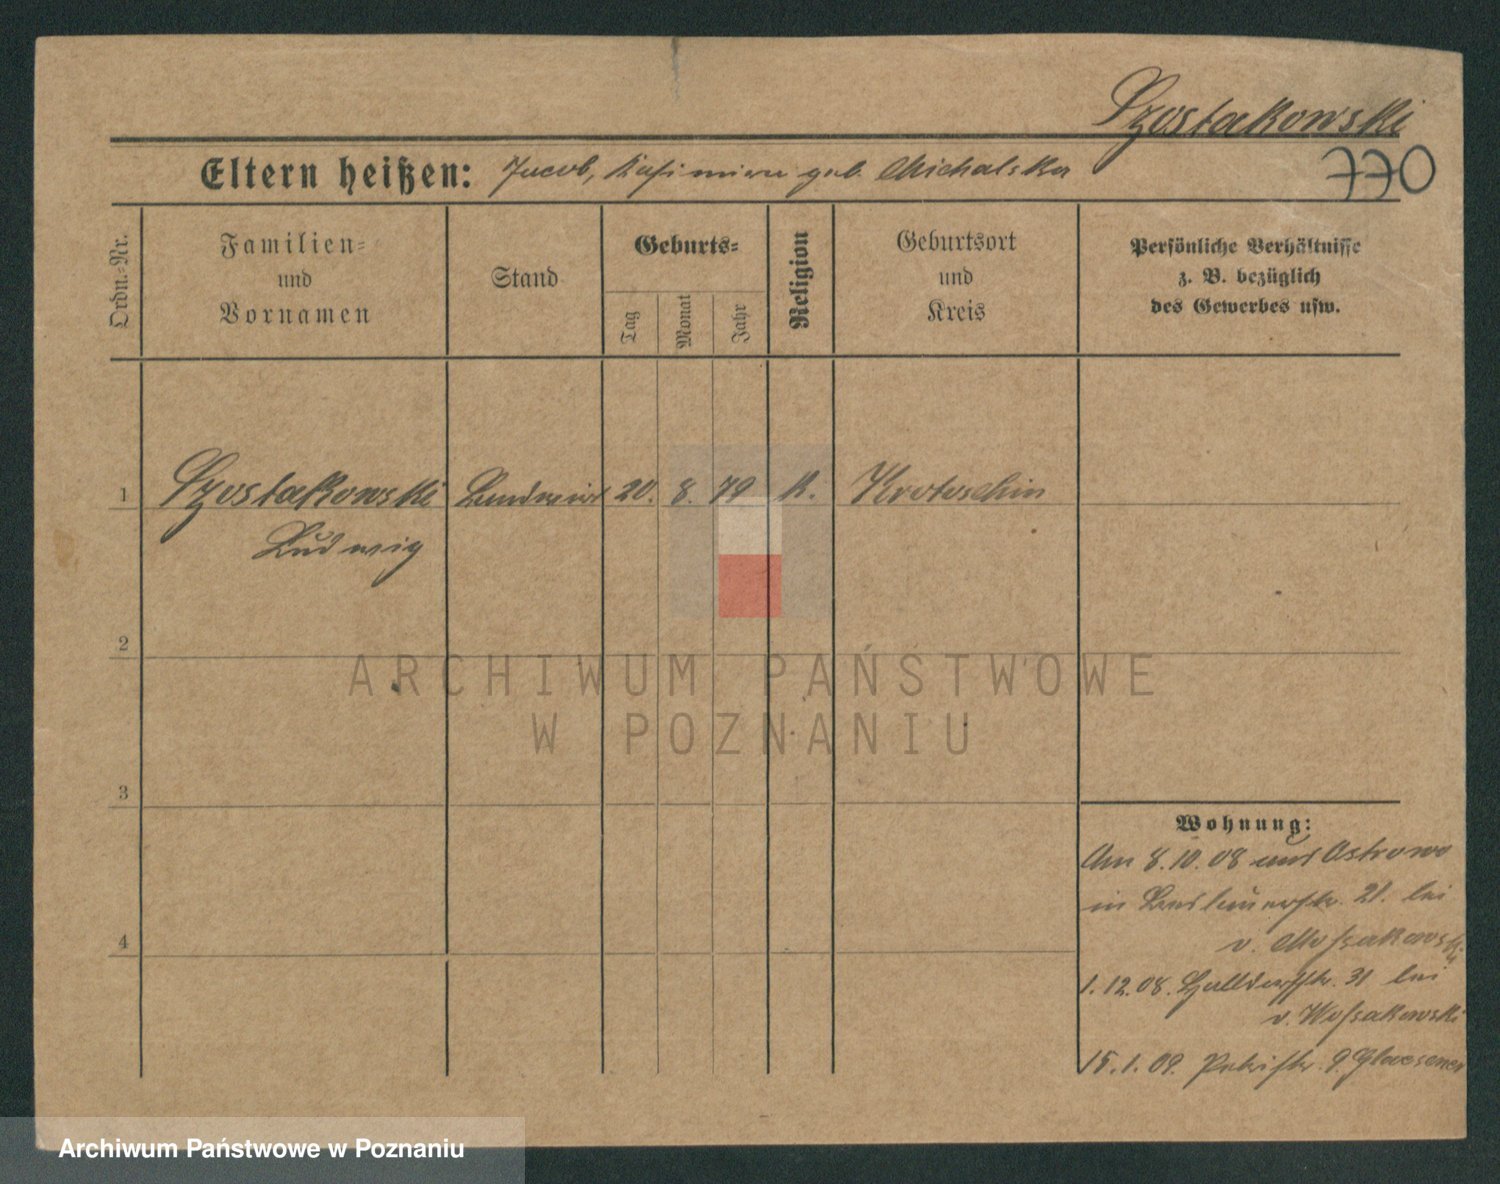 Szostakowski
Eltern heißen: Jacob, Kasimira geb. Michalska
770
Ordn.-Nr.
Familien-
und
Vornamen
Stand
Geburts-
Tag
Monat
Jahr
Religion
Geburtsort
und
Kreis
Persönliche Verhältnisse
z. B. bezüglich
des Gewerbes usw.
1 Szostakowski Landwirt 20. 8. 79 K. Krotoschin
Ludwig
2
ARCHIWUM PAŃSTWOWE
W POZNANIU
3
4
Wohnung:
Am 8.10.08 aus Ostrowo
in Breslauerstr. 21. bei
v.
1.12.08. 31 bei
v.
15.1.09. Petristr. 9.
Archiwum Państwowe w Poznaniu